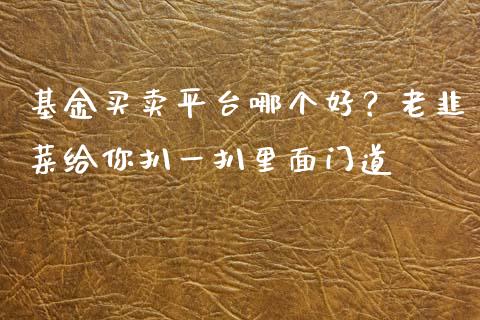 基金买卖平台哪个好？老韭
菜给你扒一扒里面门道